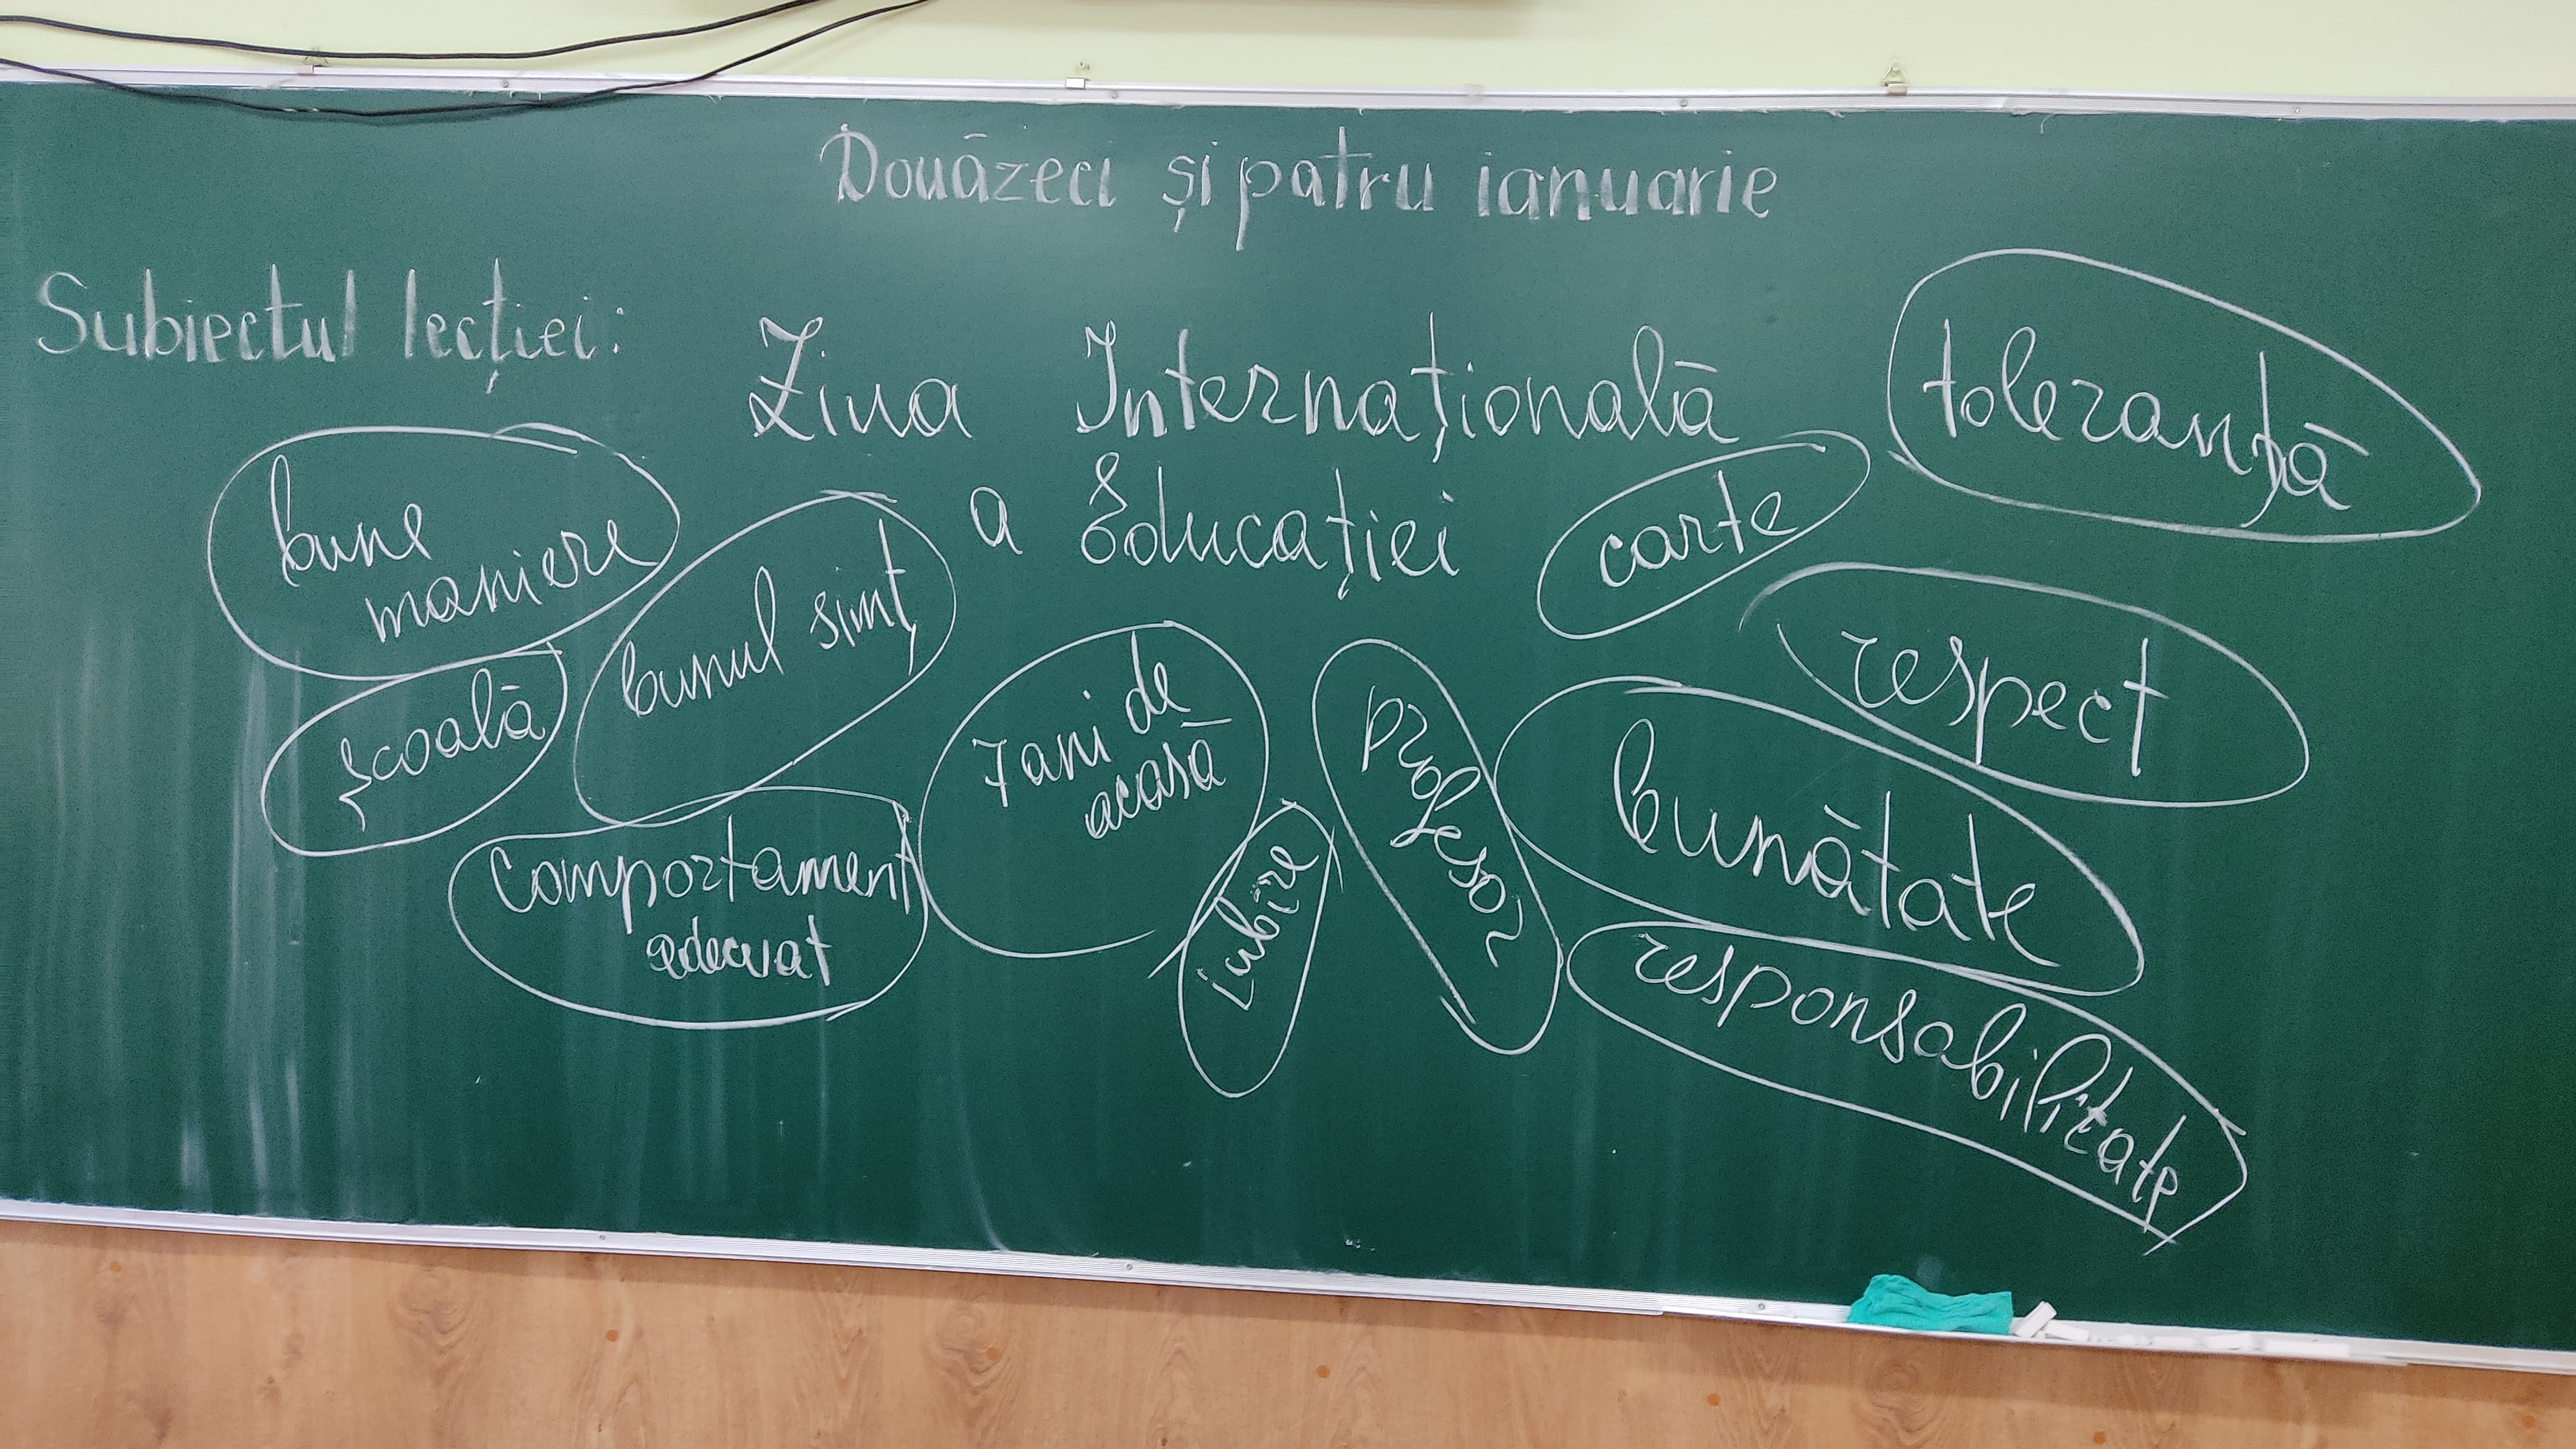 Douăzeci și patru ianuarie
Subiectul lecției:
Ziua Internațională
a Educației
toleranță
carte
bune
maniere
bunul simț
respect
școală
7 ani de
acasă
profesor
bunătate
comportament
adecvat
iubire
responsabilitate